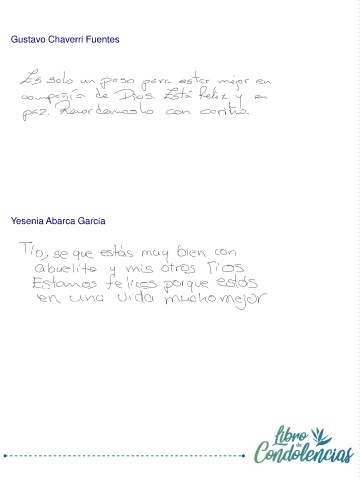 Gustavo Chaverri Fuentes
Es solo un paso para estar mejor en
compañía de Dios Está feliz y en
paz. Recordemoslo con cariño.
Yesenia Abarca García
Tío, se que estás muy bien con
abuelito y mis otros Tíos
Estamos felices porque estás
en una vida mucho mejor
Libro de
Condolencias